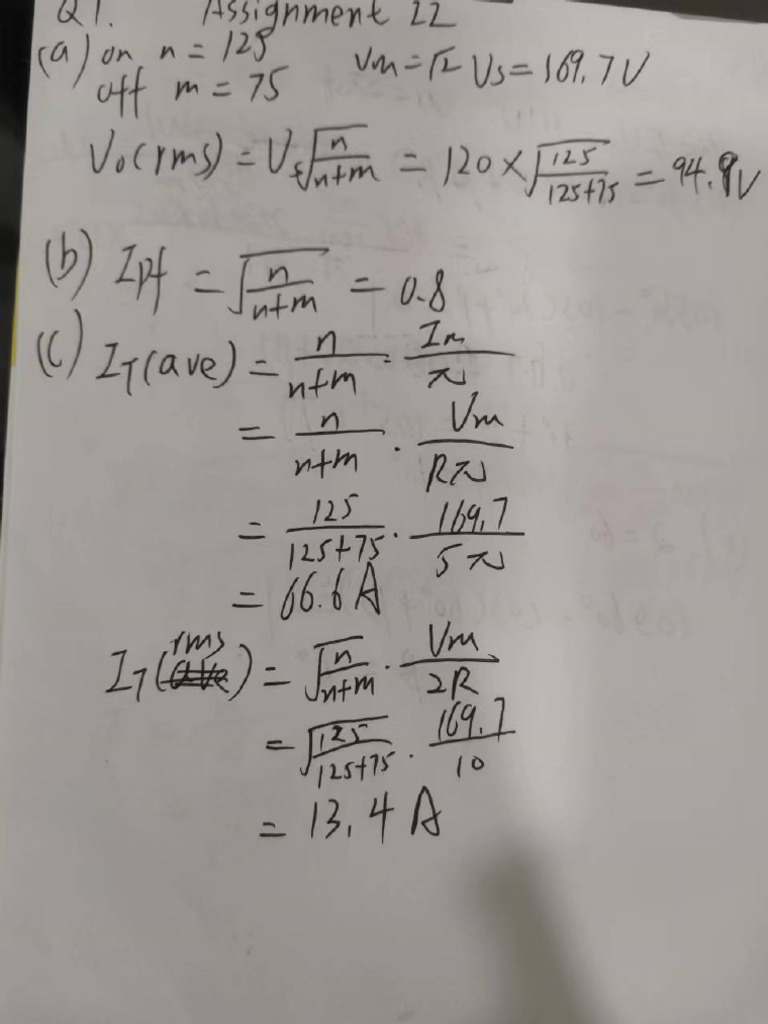 Q1. Assignment 22
(a) on n = 125 Vm = √2 Vs = 169.7V
off m = 75
Vo(rms) = Vs√(n/(n+m)) = 120 × √(125/(125+75)) = 94.9V
(b) Ipf = √(n/(n+m)) = 0.8
(c) IT(ave) = n/(n+m) · Im/π
= n/(n+m) · Vm/(Rπ)
= 125/(125+75) · 169.7/(5π)
= 66.6A
IT(rms) = √(n/(n+m)) · Vm/(2R)
= √(125/(125+75)) · 169.7/10
= 13.4 A